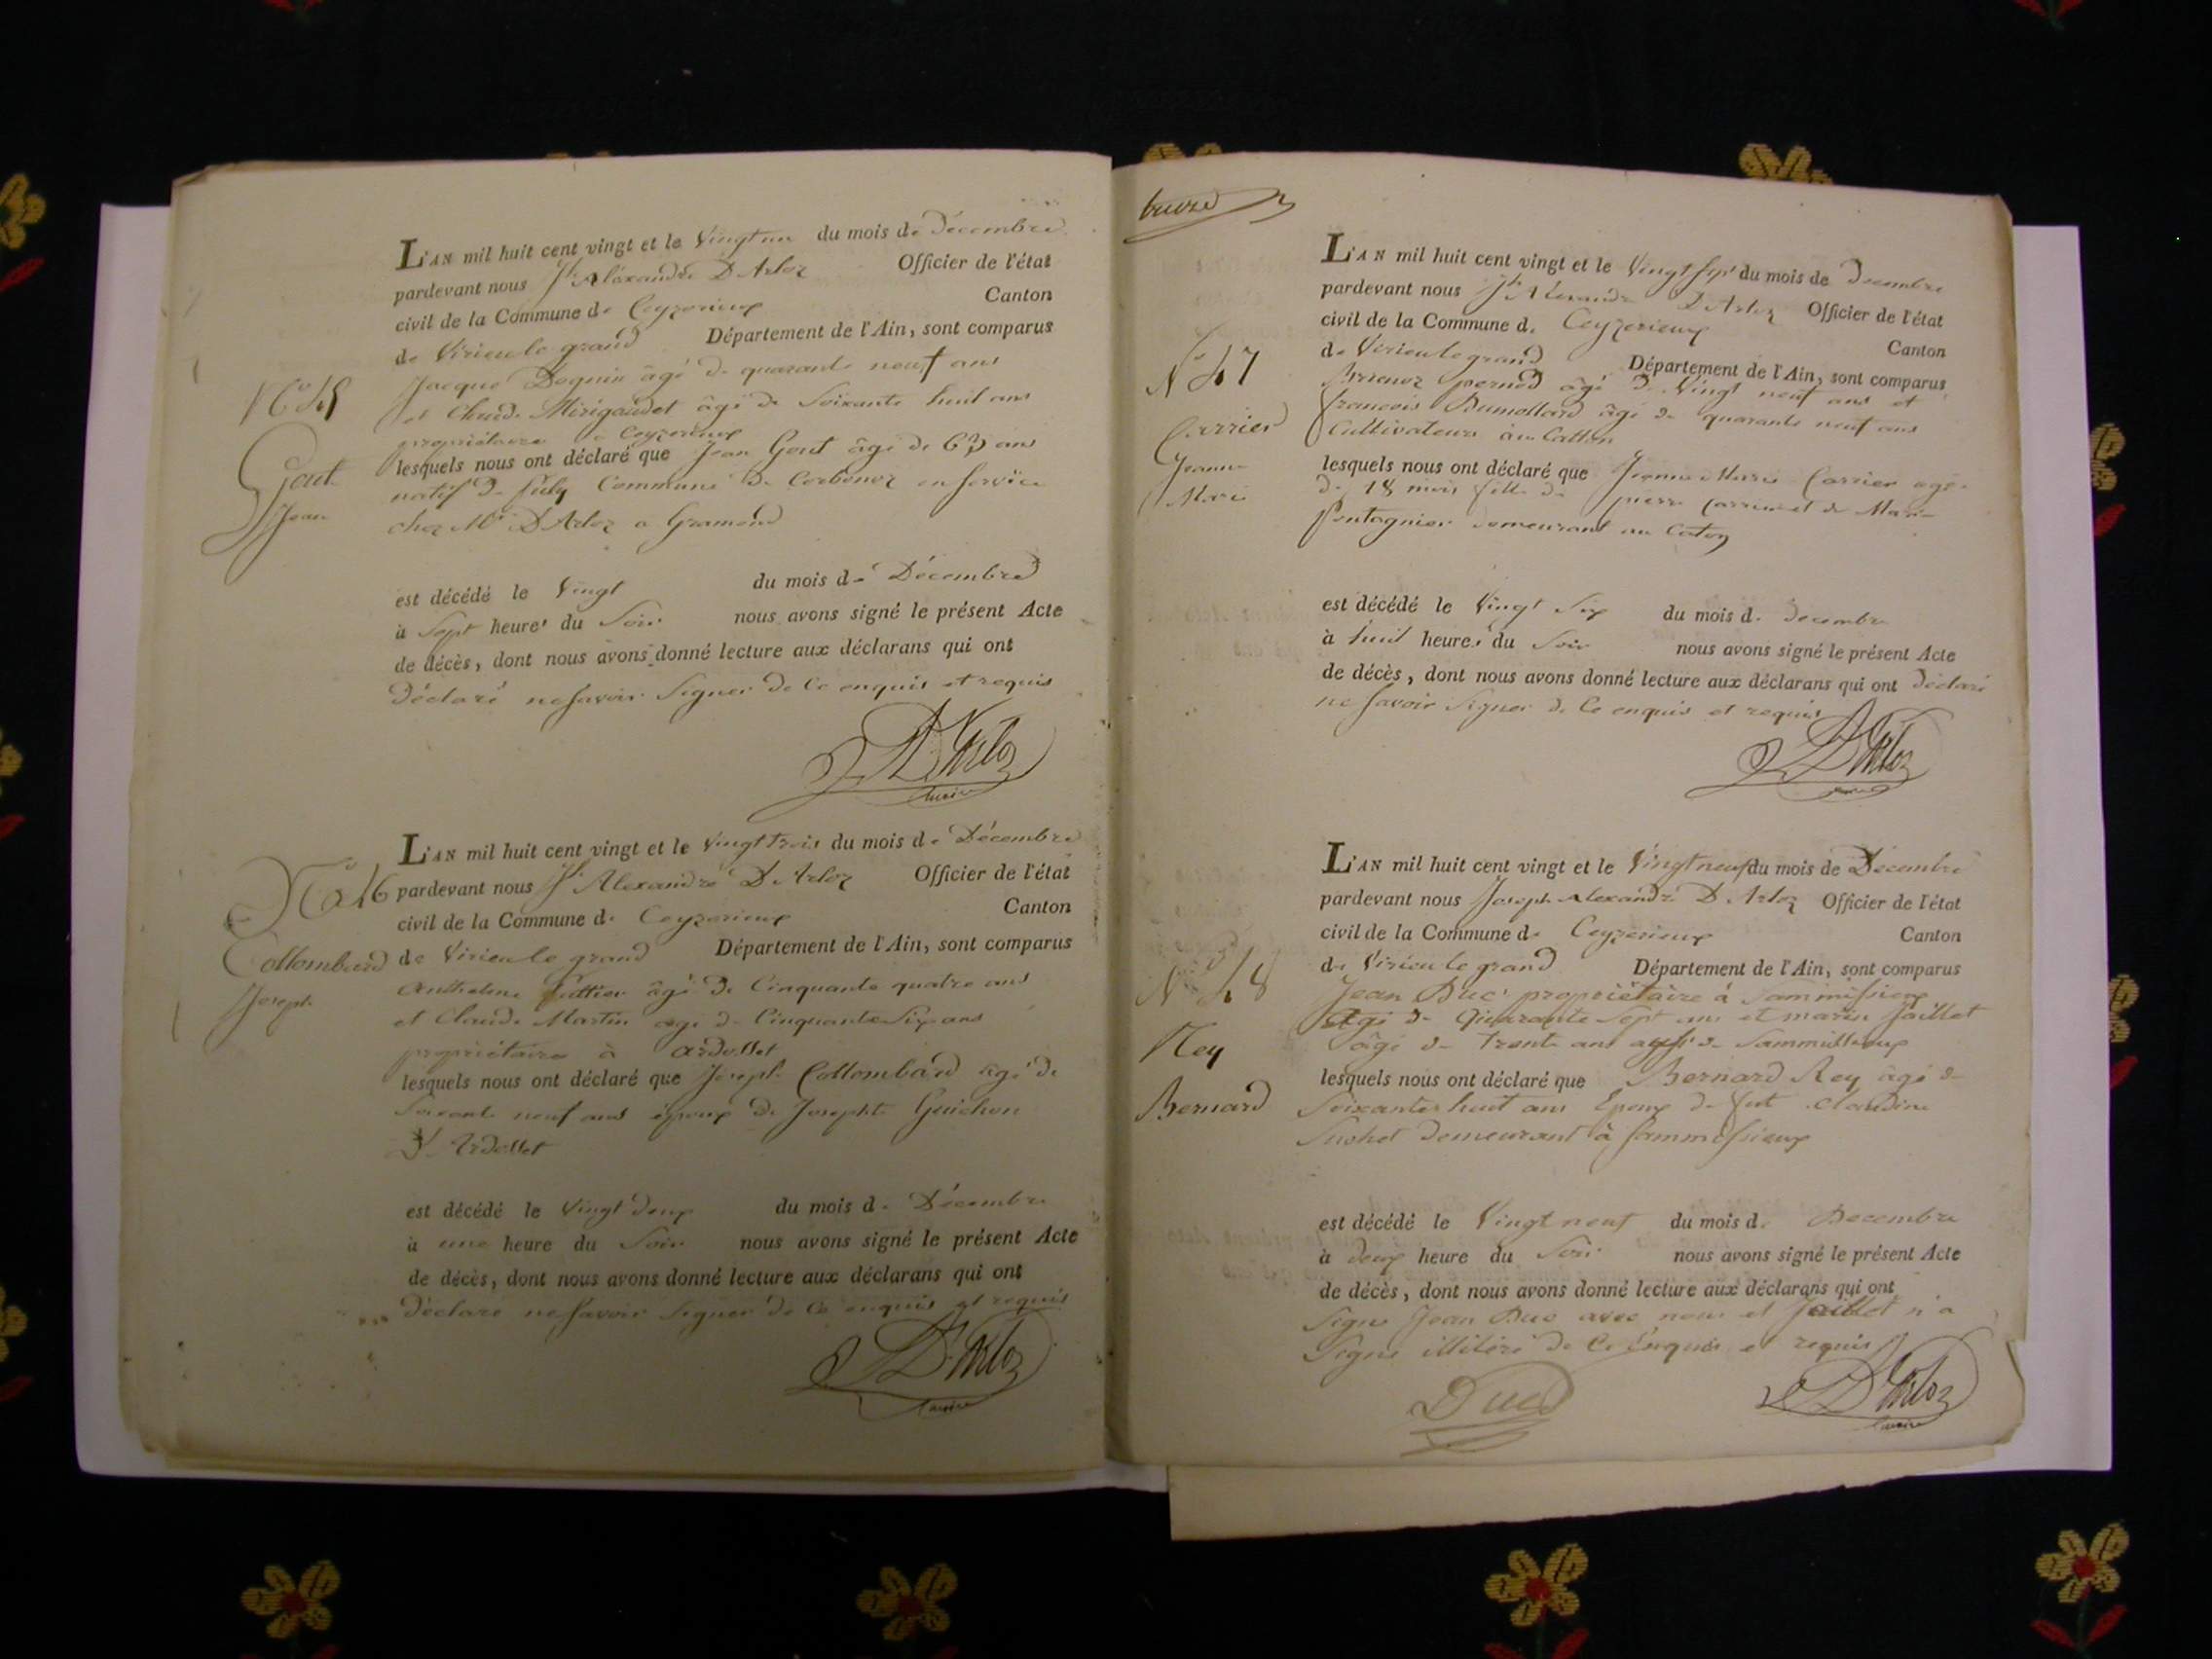 L'AN mil huit cent vingt et le Vingt un du mois de Décembre
pardevant nous Jh Aléxandre D'Arloz Officier de l'état
civil de la Commune de Ceyzerieux Canton
de Virieu le grand Département de l'Ain, sont comparus
N° 45
Jacque âgé de quarante neuf ans
et Claude Mirigaudet âgé de Soixante huit ans
propriétaire a Ceyzerieux
Gout
lesquels nous ont déclaré que Jean Gout âgé de 63 ans
Jean
natif de Commune de Corbonoz en Service
chez Mr D'Arloz a Gramond
est décédé le Vingt du mois de Décembre
à Sept heures du Soir nous avons signé le présent Acte
de décès, dont nous avons donné lecture aux déclarans qui ont
Déclaré ne savoir Signer de ce enquis et requis
J A D'Arloz
maire
L'AN mil huit cent vingt et le Vingt trois du mois de Décembre
N° 46
pardevant nous Jh Alexandre D'Arloz Officier de l'état
civil de la Commune de Ceyzerieux Canton
Collombard
de Virieu le grand Département de l'Ain, sont comparus
Joseph
Anthelme âgé de Cinquante quatre ans
et Claude Martin age de Cinquante Six ans
propriétaire à Ardosset
lesquels nous ont déclaré que Joseph Collombard âgé de
Soixante neuf ans époux de Josephte Guichon
d'Ardosset
est décédé le Vingt deux du mois de Décembre
à une heure du Soir nous avons signé le présent Acte
de décès, dont nous avons donné lecture aux déclarans qui ont
Déclaré ne savoir Signer de ce enquis et requis
D'Arloz
maire
L'AN mil huit cent vingt et le Vingt sept du mois de Decembre
pardevant nous Jh Alexandre D'Arloz Officier de l'état
civil de la Commune de Ceyzerieux Canton
N° 47
de Virieu le grand Département de l'Ain, sont comparus
pernod âgé de Vingt neuf ans et
Carrier
francois Dumollard âgé de quarante neuf ans
Cultivateurs au Catton
Jeanne
Marie
lesquels nous ont déclaré que Jeanne Marie Carrier agé
de 18 mois fille de pierre Carrier et de Marie
pontagnier demeurant au Caton
est décédé le Vingt Six du mois de Decembre
à huit heures du Soir nous avons signé le présent Acte
de décès, dont nous avons donné lecture aux déclarans qui ont Déclaré
ne savoir Signer de ce enquis et requis
D'Arloz
L'AN mil huit cent vingt et le Vingt neuf du mois de Décembre
pardevant nous Joseph Alexandre D'Arloz Officier de l'état
civil de la Commune de Ceyzerieux Canton
de Virieu le grand Département de l'Ain, sont comparus
N° 48
Jean Duc propriétaire à Sammissieux
agé de Quarante Sept ans et marin Jaillet
Rey
âgé de trente ans aussi de Sammissieux
lesquels nous ont déclaré que Bernard Rey âgé de
Bernard
Soixante huit ans Epoux de fut Claudine
Suchet demeurant à Sammissieux
est décédé le Vingt neuf du mois de Decembre
à deux heure du Soir nous avons signé le présent Acte
de décès, dont nous avons donné lecture aux déclarans qui ont
Signé Jean Duc avec nous et Jaillet n'a
Signé illitéré de ce Enquis et requis
Duc
D'Arloz
maire